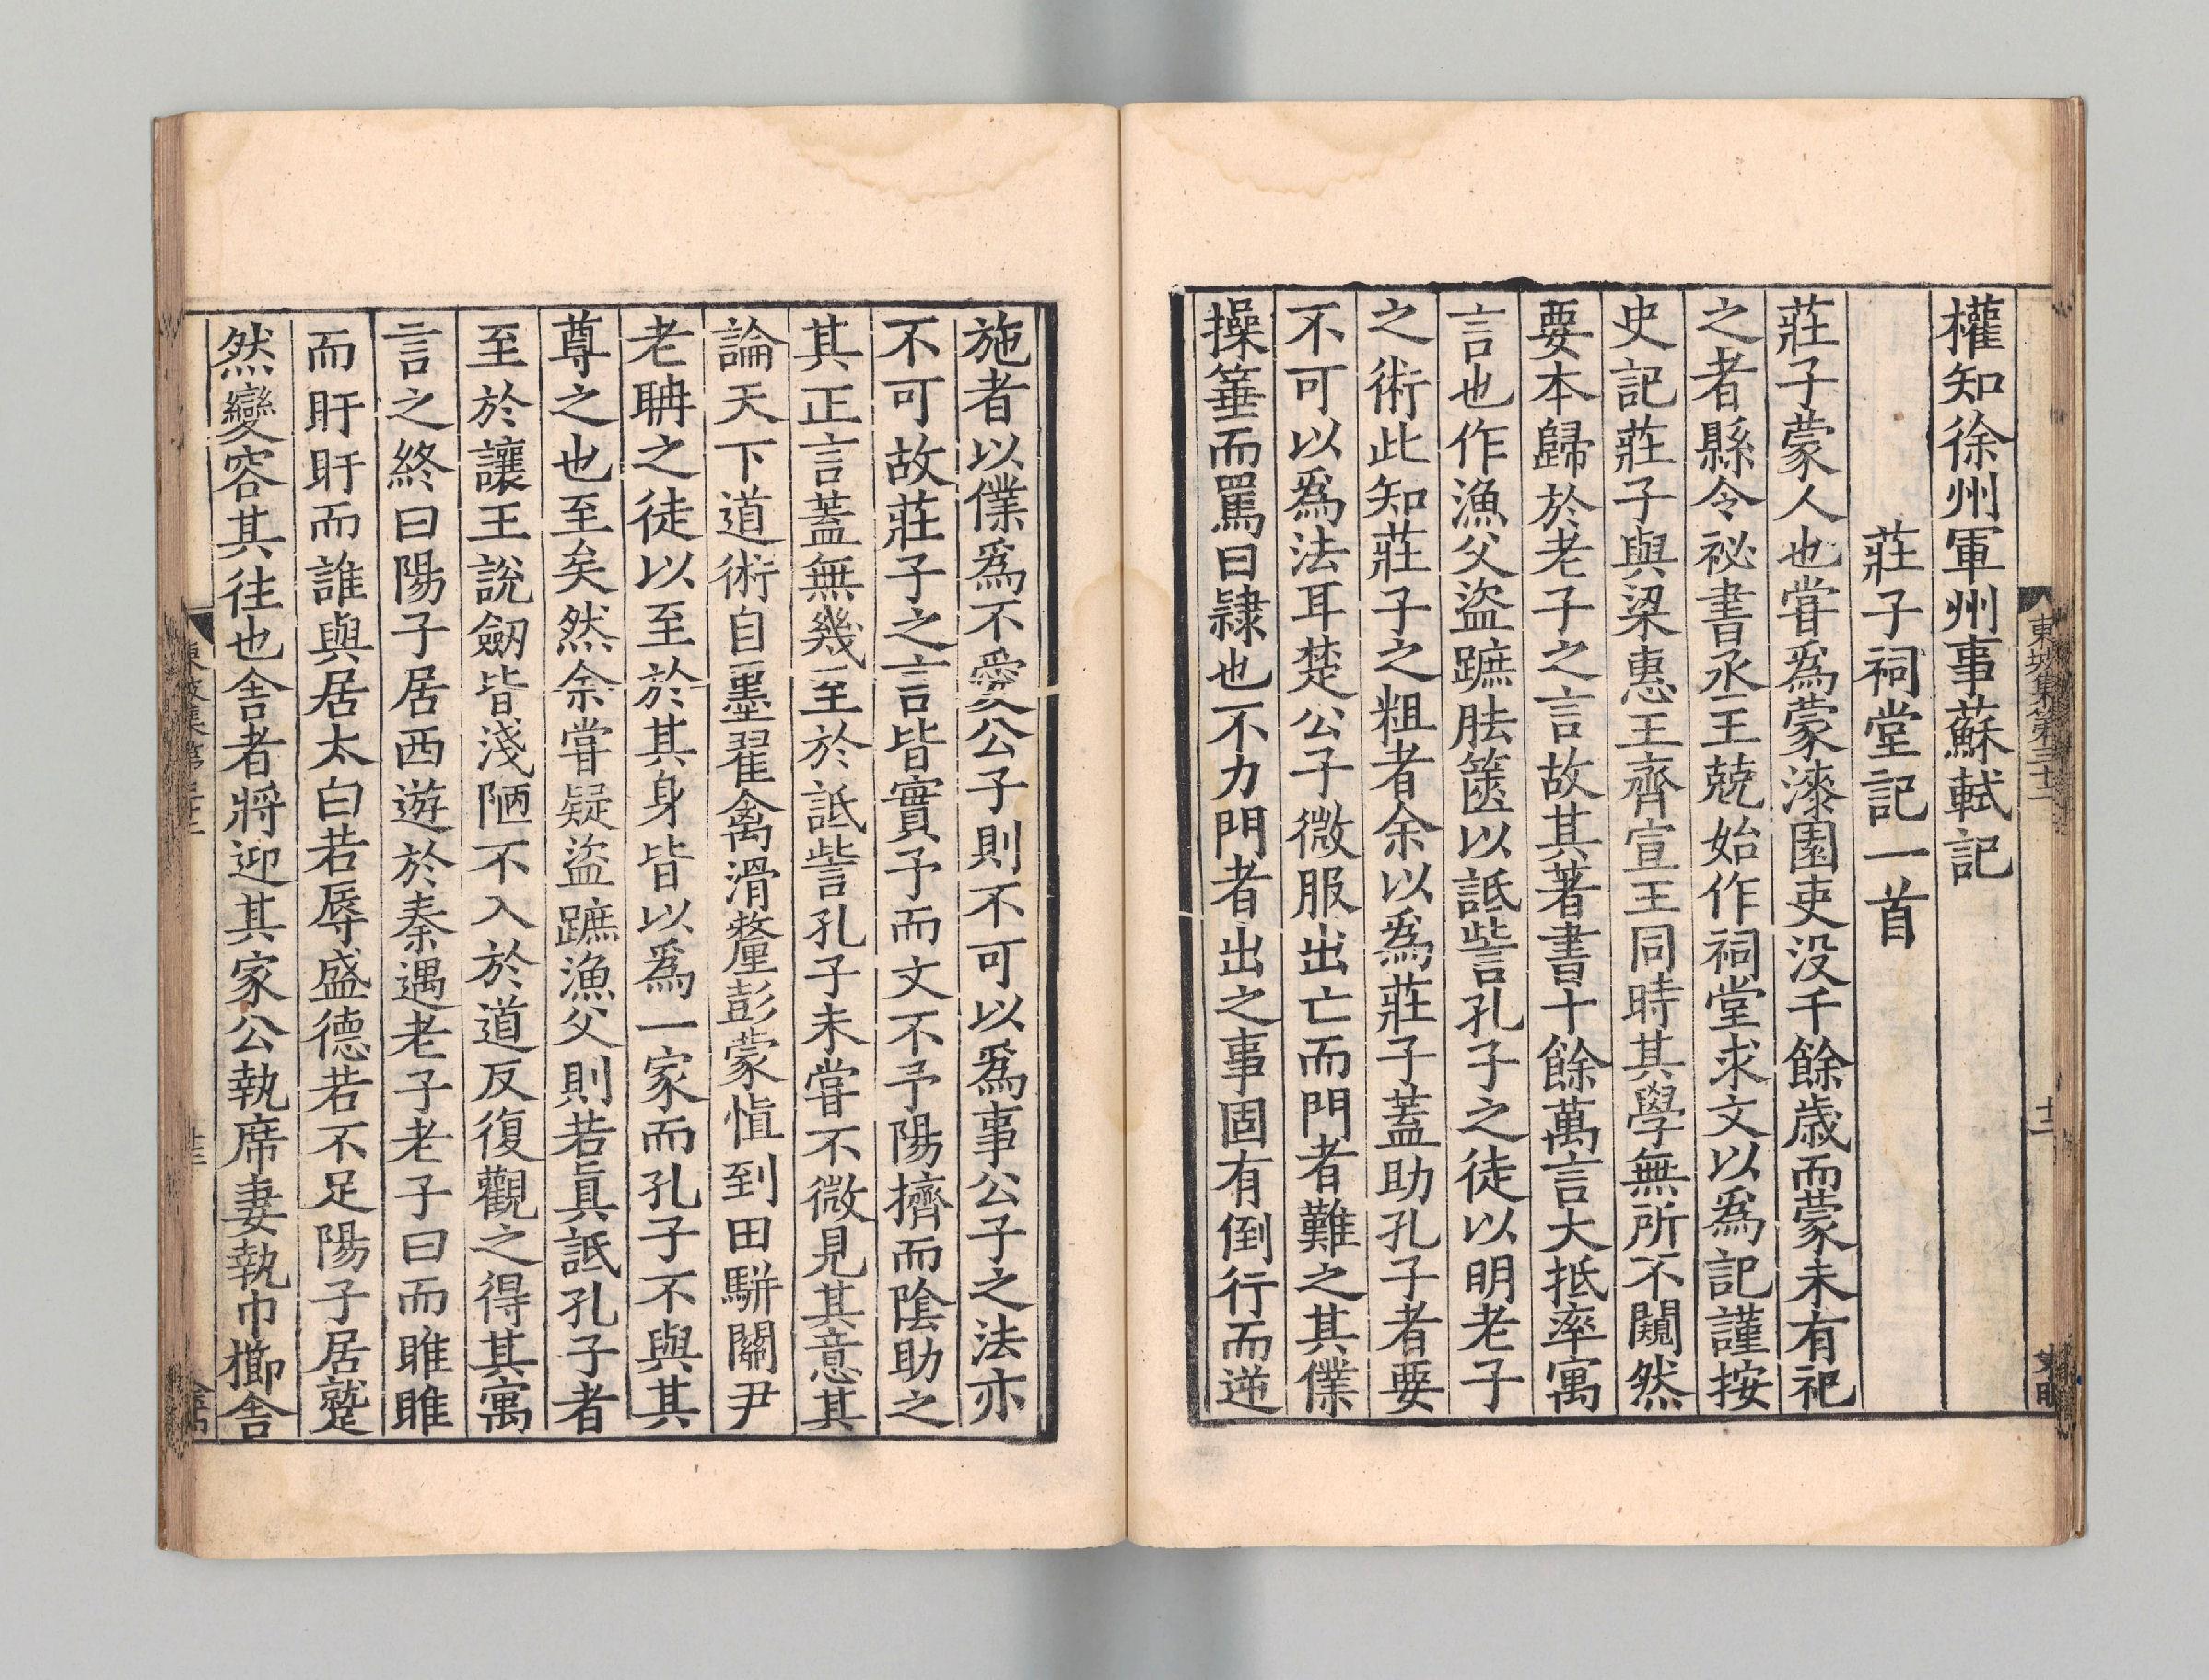 東坡集第三十二
十二
權知徐州軍州事蘇軾記
莊子祠堂記一首
莊子蒙人也甞爲蒙漆園吏没千餘歳而蒙未有祀
之者縣令祕書丞王兢始作祠堂求文以爲記謹按
史記莊子與梁惠王齊宣王同時其學無所不闚然
要本歸於老子之言故其著書十餘萬言大抵率寓
言也作漁父盜蹠胠篋以詆訾孔子之徒以明老子
之術此知莊子之粗者余以爲莊子蓋助孔子者要
不可以爲法耳楚公子微服出亡而門者難之其僕
操箠而罵曰隷也不力門者出之事固有倒行而逆
施者以僕爲不愛公子則不可以爲事公子之法亦
不可故莊子之言皆實予而文不予陽擠而陰助之
其正言蓋無幾至於詆訾孔子未甞不微見其意其
論天下道術自墨翟禽滑釐彭蒙慎到田駢關尹
老聃之徒以至於其身皆以爲一家而孔子不與其
尊之也至矣然余甞疑盜蹠漁父則若眞詆孔子者
至於讓王說劒皆淺陋不入於道反復觀之得其寓
言之終曰陽子居西遊於秦遇老子老子曰而睢睢
而盱盱而誰與居太白若辱盛德若不足陽子居蹵
然變容其往也舍者將迎其家公執席妻執巾櫛舍
東坡集第三十二
十三